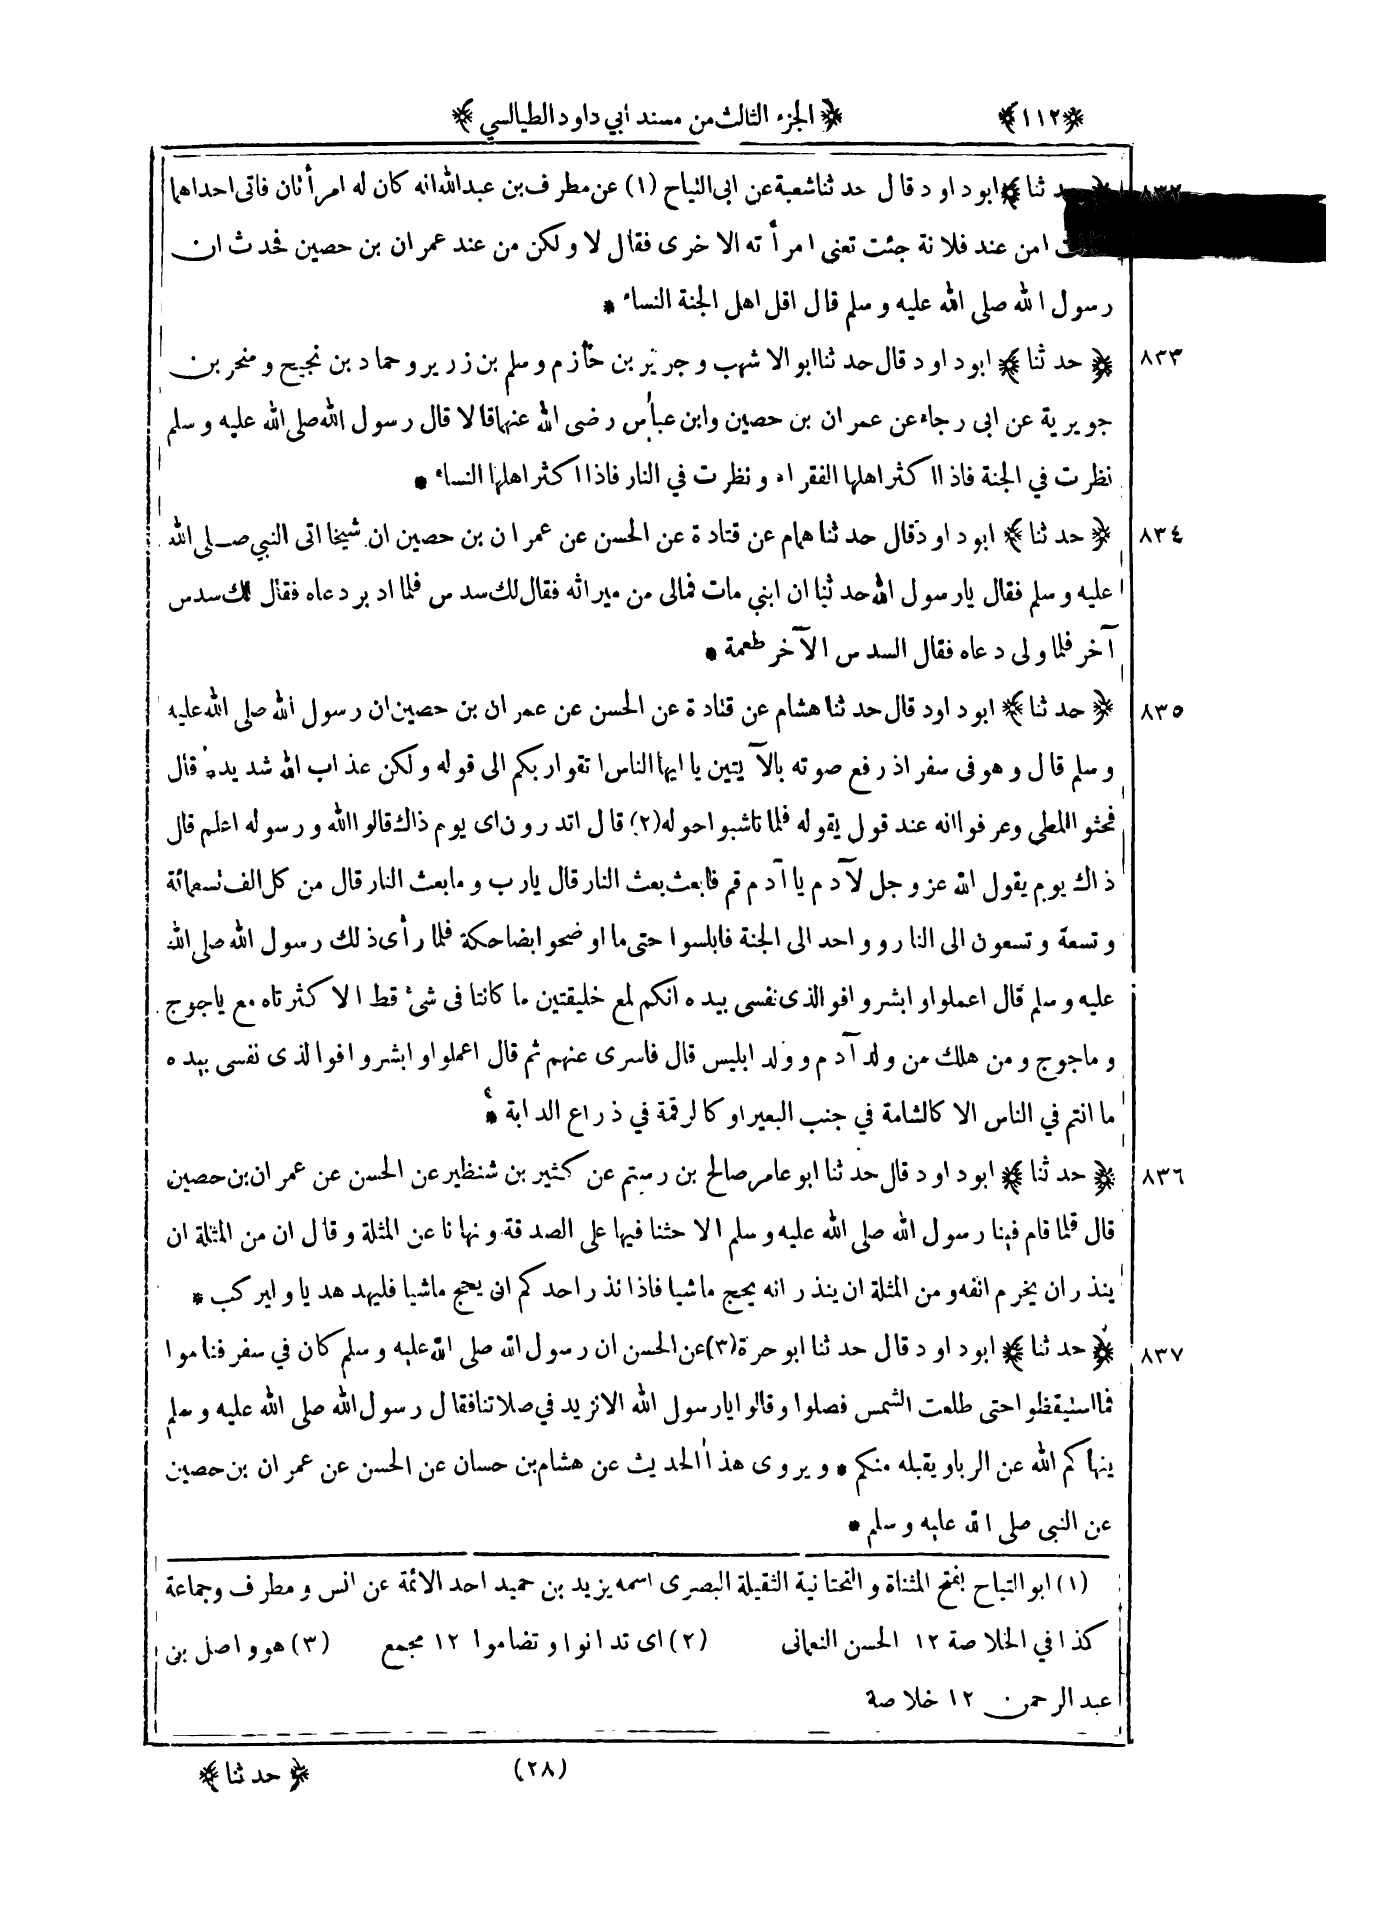 ﴿١١٢﴾ ﴿ الجزء الثالث من مسند أبي داود الطيالسي ﴾
٨٣٢ ثنا ﴾ ابو داود قال حدثنا شعبة عن ابى التياح (١) عن مطرف بن عبد الله انه كان له امرأتان فاتى احداهما
امن عند فلانة جئت تعنى امرأته الاخرى فقال لا ولكن من عند عمران بن حصين فحدث ان
رسول الله صلى الله عليه وسلم قال اقل اهل الجنة النساء *
٨٣٣ ﴿ حدثنا ﴾ ابو داود قال حدثنا ابو الاشهب وجرير بن حازم وسلم بن زرير وحماد بن نجيح وصخر بن
جويرية عن ابى رجاء عن عمران بن حصين وابن عباس رضى الله عنهما قالا قال رسول الله صلى الله عليه وسلم
نظرت في الجنة فاذا اكثر اهلها الفقراء ونظرت في النار فاذا اكثر اهلها النساء *
٨٣٤ ﴿ حدثنا ﴾ ابو داود قال حدثنا همام عن قتادة عن الحسن عن عمران بن حصين ان شيخا اتى النبي صلى الله
عليه وسلم فقال يارسول الله حدثنا ان ابني مات فمالى من ميراثه فقال لك سدس فلما ادبر دعاه فقال لك سدس
آخر فلما ولى دعاه فقال السدس الآخر طعمة *
٨٣٥ ﴿ حدثنا ﴾ ابو داود قال حدثنا هشام عن قتادة عن الحسن عن عمران بن حصين ان رسول الله صلى الله عليه
وسلم قال وهو فى سفر اذ رفع صوته بالآيتين يا ايها الناس اتقوا ربكم الى قوله ولكن عذاب الله شديد قال
فحثو المطي وعرفوا انه عند قول يقوله فلما تاشبوا حوله (٢) قال اتدرون اى يوم ذاك قالوا الله ورسوله اعلم قال
ذاك يوم يقول الله عز وجل لآدم يا آدم قم فابعث بعث النار قال يارب وما بعث النار قال من كل الف تسعمائة
وتسعة وتسعون الى النار وواحد الى الجنة فابلسوا حتى ما اوضحوا بضاحكة فلما رأى ذلك رسول الله صلى الله
عليه وسلم قال اعملوا وابشروا فوالذى نفسى بيده انكم لمع خليقتين ما كانتا فى شئ قط الا كثرتاه مع ياجوج
وماجوج ومن هلك من ولد آدم وولد ابليس قال فاسرى عنهم ثم قال اعملوا وابشروا فوالذى نفسى بيده
ما انتم في الناس الا كالشامة في جنب البعير او كالرقمة في ذراع الدابة *
٨٣٦ ﴿ حدثنا ﴾ ابو داود قال حدثنا ابو عامر صالح بن رستم عن كثير بن شنظير عن الحسن عن عمران بن حصين
قال قلما قام فينا رسول الله صلى الله عليه وسلم الا حثنا فيها على الصدقة ونهانا عن المثلة وقال ان من المثلة ان
ينذر ان يخرم انفه ومن المثلة ان ينذر انه يحج ماشيا فاذا نذر احدكم ان يحج ماشيا فليهد هديا وليركب *
٨٣٧ ﴿ حدثنا ﴾ ابو داود قال حدثنا ابو حرة (٣) عن الحسن ان رسول الله صلى الله عليه وسلم كان في سفر فناموا
فما استيقظوا حتى طلعت الشمس فصلوا وقالوا يارسول الله الا نزيد في صلاتنا فقال رسول الله صلى الله عليه وسلم
ينهاكم الله عن الربا ويقبله منكم * ويروى هذا الحديث عن هشام بن حسان عن الحسن عن عمران بن حصين
عن النبى صلى الله عليه وسلم *
(١) ابو التياح بفتح المثناة والتحتانية الثقيلة البصرى اسمه يزيد بن حميد احد الائمة عن انس ومطرف وجماعة
كذا في الخلاصة ١٢ الحسن النعمانى (٢) اى تدانوا وتضاموا ١٢ مجمع (٣) هو واصل بن
عبد الرحمن ١٢ خلاصة
(٢٨) ﴿ حدثنا ﴾